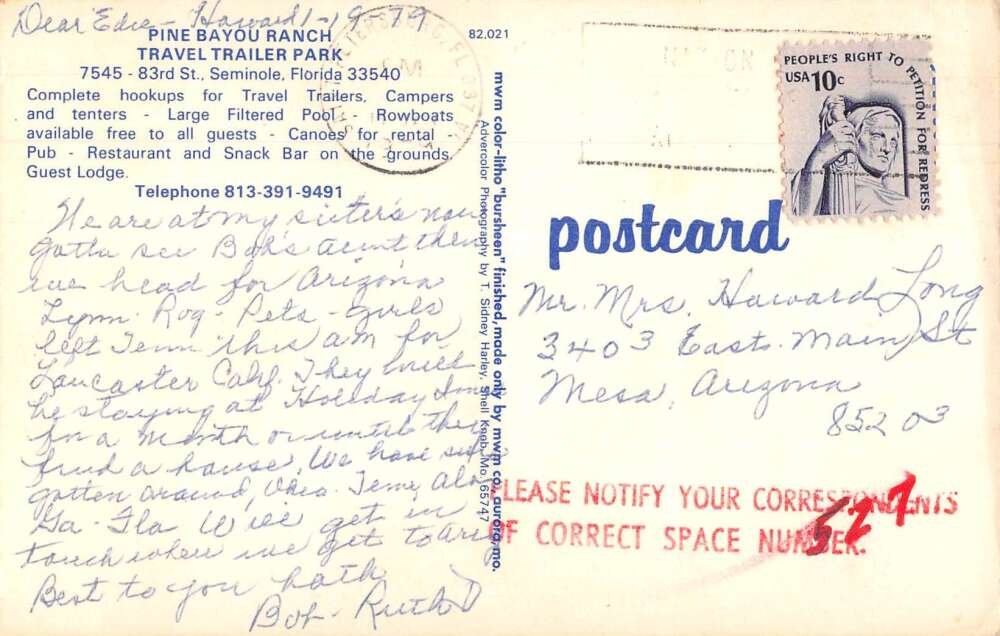 Dear Edie - Howard 1-19-79
PINE BAYOU RANCH
TRAVEL TRAILER PARK
7545 - 83rd St., Seminole, Florida 33540
Complete hookups for Travel Trailers, Campers
and tenters - Large Filtered Pool - Rowboats
available free to all guests - Canoes for rental -
Pub - Restaurant and Snack Bar on the grounds.
Guest Lodge.
Telephone 813-391-9491
We are at my sister's now
gotta see Bob's aunt then
we head for Arizona
Lynn - Rog - Pets - girls
left Tenn this am for
Lancaster Calif. They will
be staying at Holiday Inn
for a month or until they
find a house. We have sure
gotten around, Ohio. Tenn, Ala
Ga - Fla Will get in
touch when we get to Ariz
Best to you both
Bob - Ruth
82,021
mwm color-litho "bursheen" finished, made only by mwm co., aurora, mo.
Advercolor Photography by T. Sidney Harley, Shell Knob, Mo. 65747
PEOPLE'S RIGHT TO PETITION FOR REDRESS
USA 10c
postcard
Mr. Mrs. Howard Long
3403 East Main St
Mesa, Arizona
85203
PLEASE NOTIFY YOUR CORRESPONDENTS
OF CORRECT SPACE NUMBER.
527